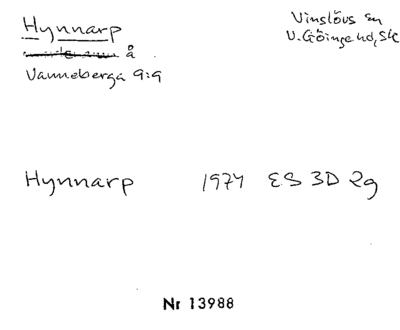 Hynnarp
Vinslövs sn
V. Göinge hd, Sk
å
Vanneberga 9:9
Hynnarp 1974 ES 3D 2g
Nr 13988